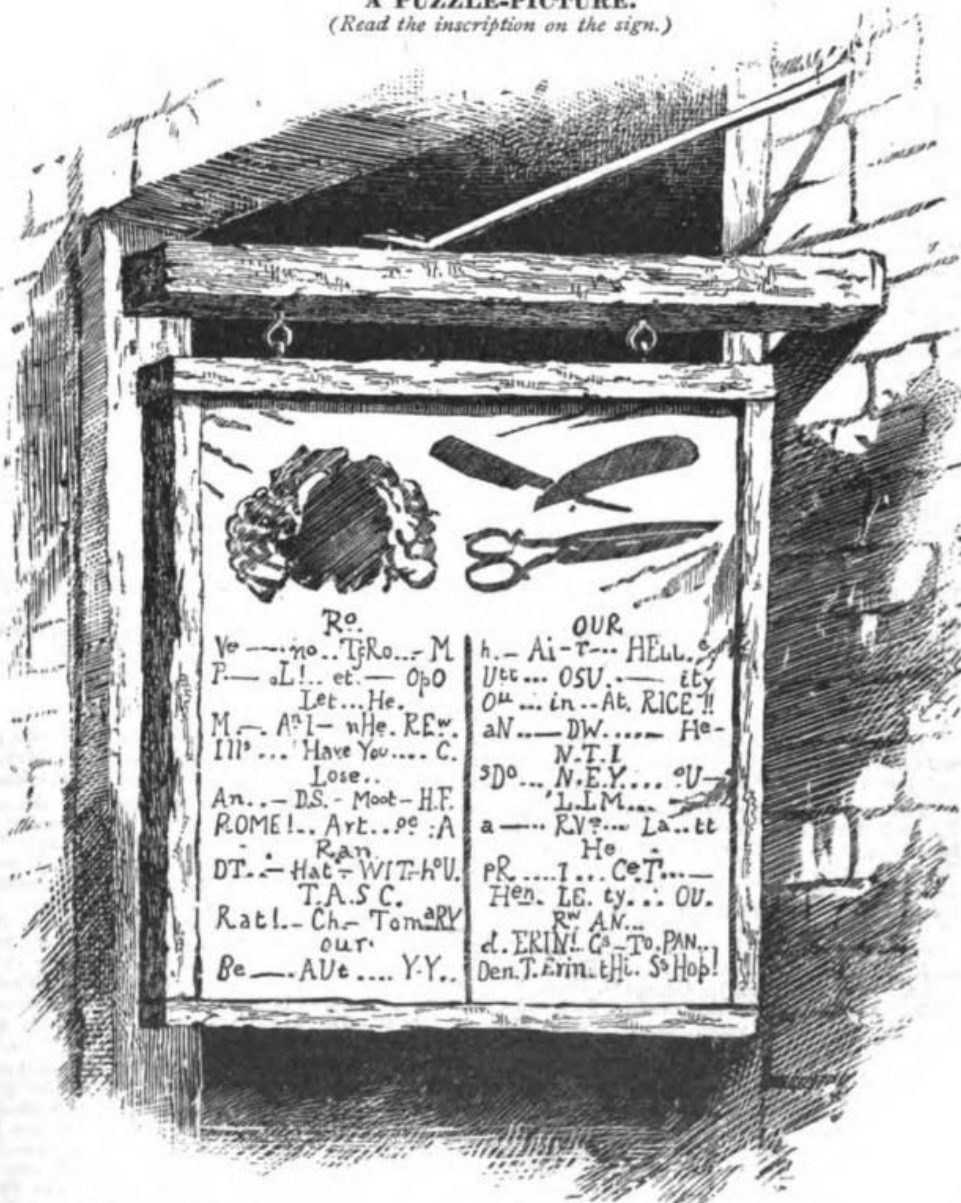 A PUZZLE-PICTURE.
(Read the inscription on the sign.)
Ro..
Ve ---- no .. TsRo... - M
P. --- oL! .. et. --- OpO
Let ... He.
M --. AnI - nHe. REw.
Ills ... 'Have You .... C.
Lose ..
An .. - D.S. - Moot - H.F.
ROME! .. Art ... oe :A
Ran
DT .. - Hat - WIT-hoU.
T.A.S C.
Rat!. - Ch. - TomaRY
our.
Be ---. AUt .... Y-Y ..
OUR
h. - Ai-r ... HELL .. e
Utt ... OSU. .--- ity
Ou ... in .. At. RICE!!
aN .. --- DW. .... He-
N.T.I
sDo ... N.E.Y .... oU-
'L.I.M ...
a ---.. RVe ... La .. tt
He
pR .... I ... CeT... ---
Hen. LE. ty. .: OU.
Rw AN...
d. ERIN!. Gs - To. PAN ..
Den. T. Erin. tHi. Ss Hop!